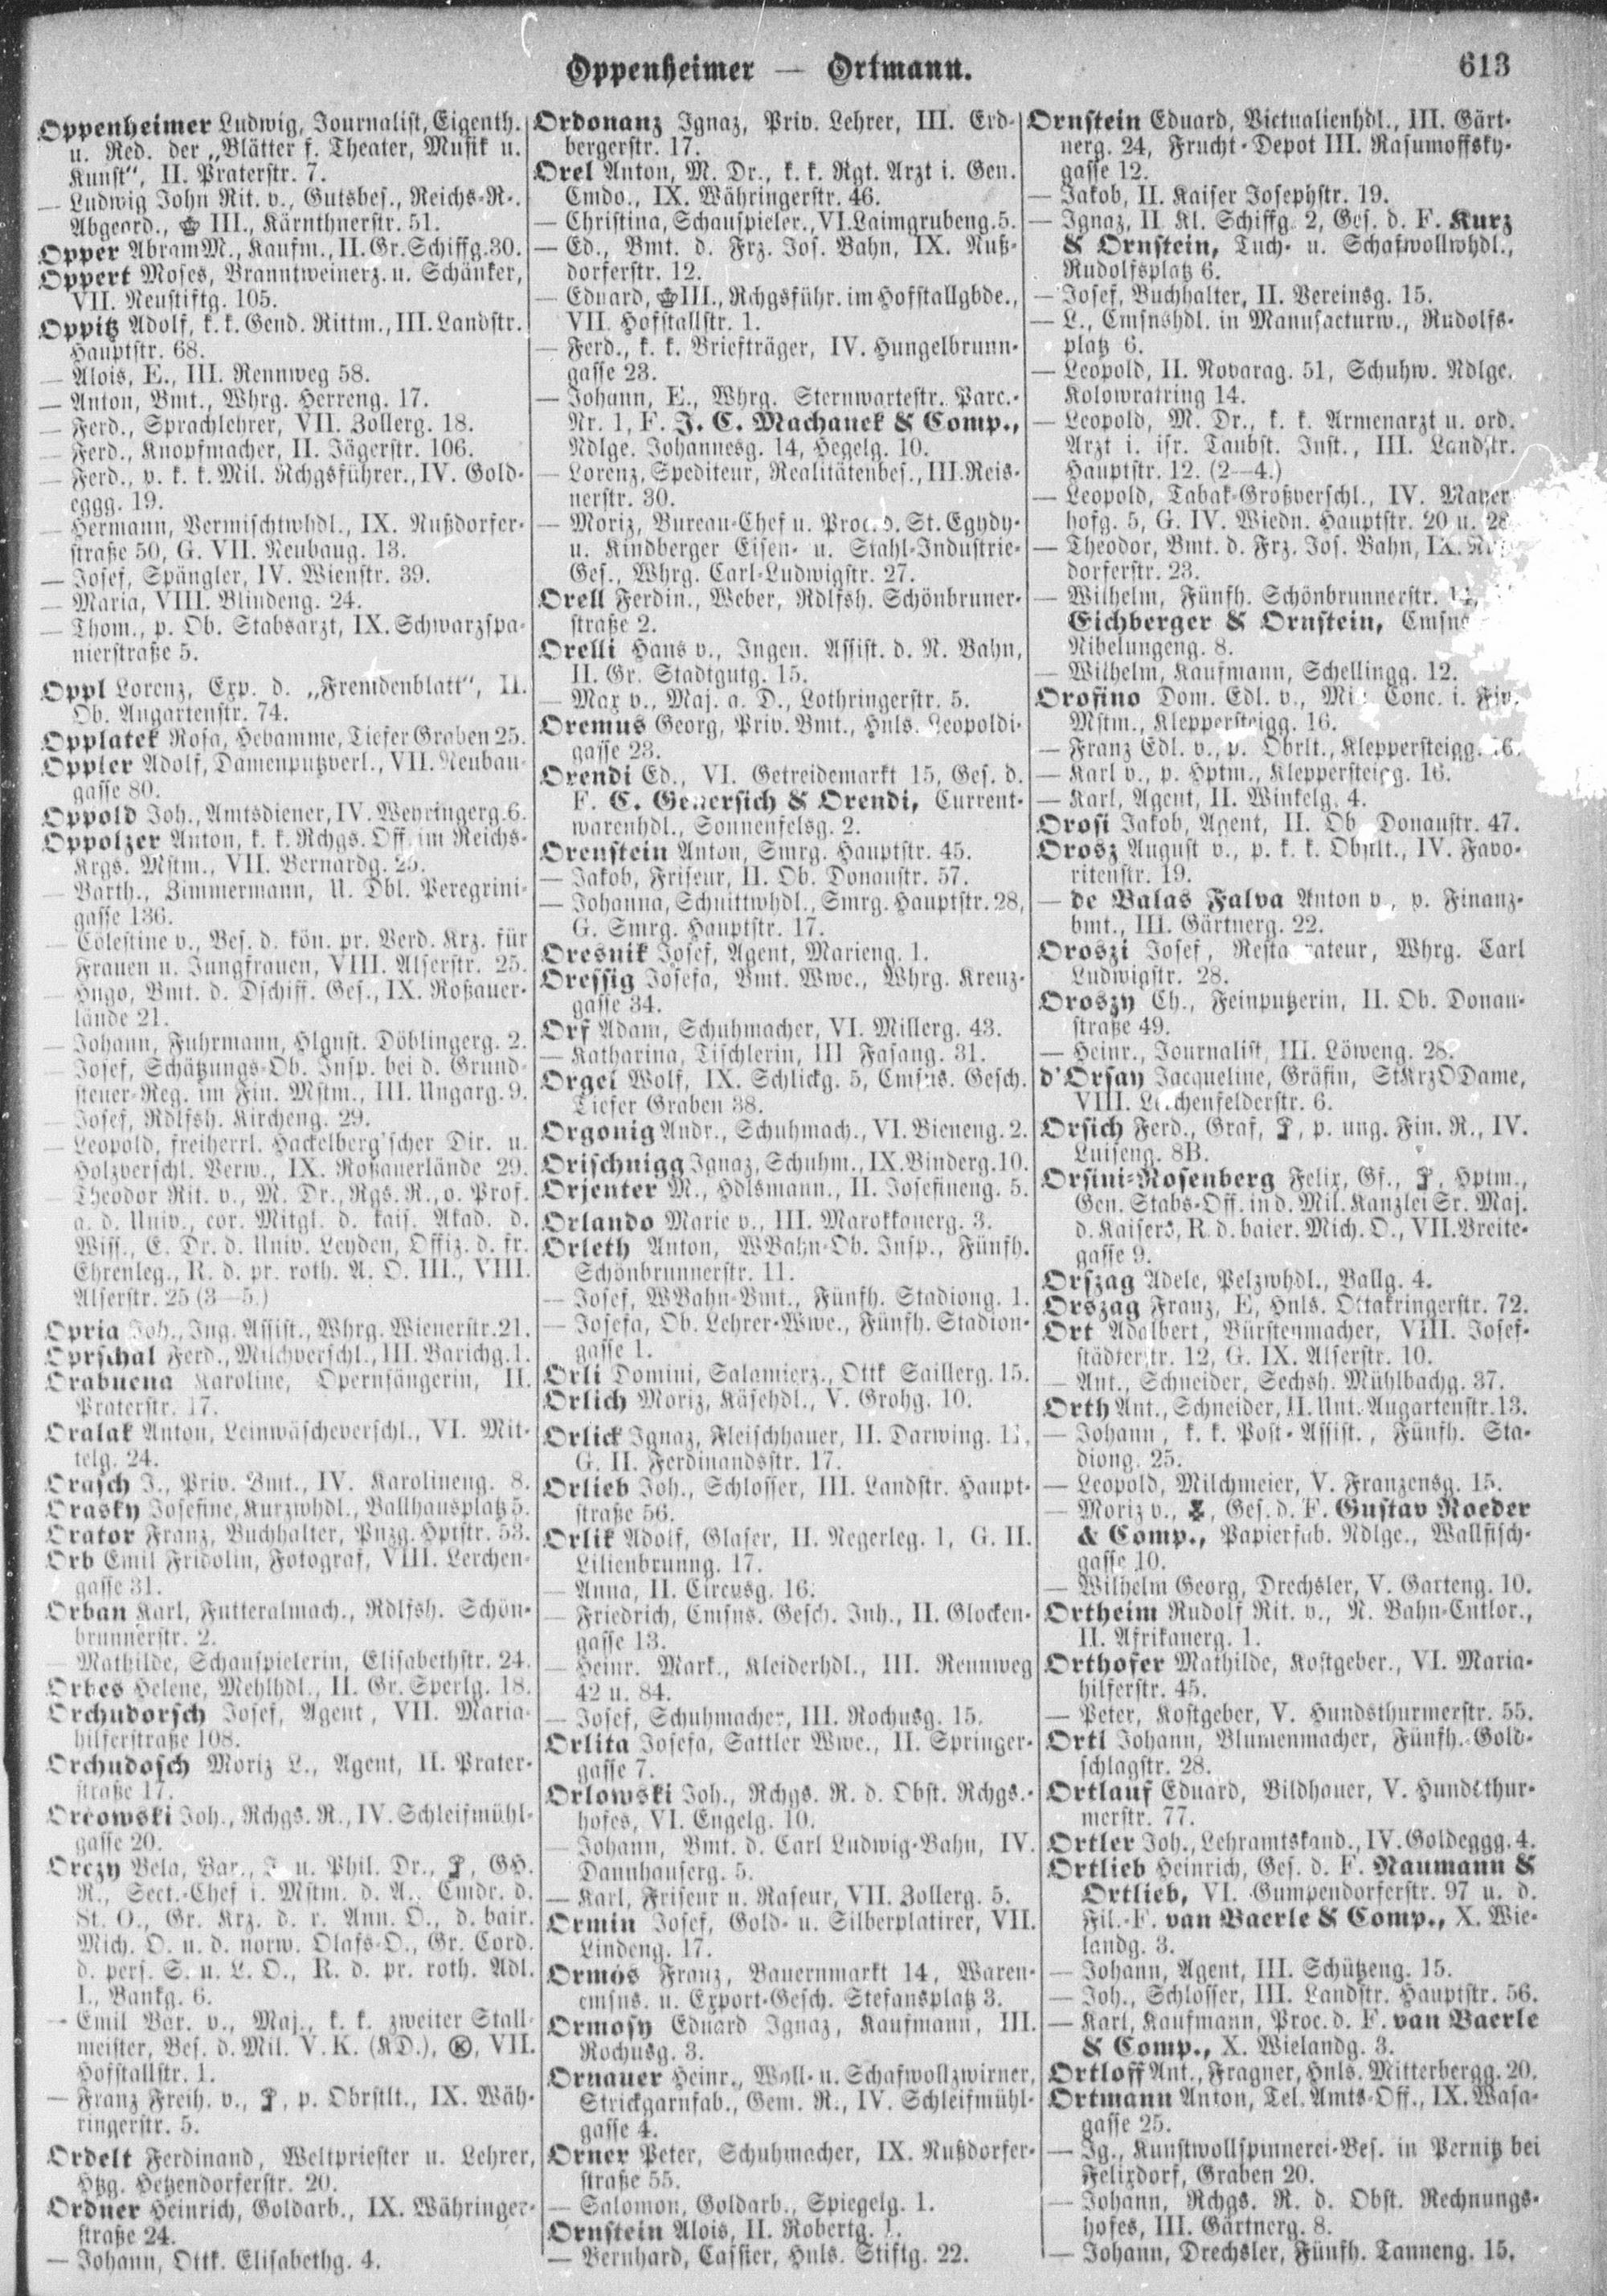 Oppenheimer — Ortmann.
613
Oppenheimer Ludwig, Journalist, Eigenth.
u. Red. der „Blätter f. Theater, Musik u.
Kunst", II. Praterstr. 7.
— Ludwig John Rit. v., Gutsbes., Reichs-R.-
Abgeord., III., Kärnthnerstr. 51.
Opper Abram M., Kaufm., II. Gr. Schiffg. 30.
Oppert Moses, Branntweinerz. u. Schänker,
VII. Neustiftg. 105.
Oppitz Adolf, k. k. Gend. Rittm., III. Landstr.
Hauptstr. 68.
— Alois, E., III. Rennweg 58.
— Anton, Bmt., Whrg. Herreng. 17.
— Ferd., Sprachlehrer, VII. Zollerg. 18.
— Ferd., Knopfmacher, II. Jägerstr. 106.
— Ferd., p. k. k. Mil. Rchgsführer., IV. Gold-
eggg. 19.
— Hermann, Vermischtwhdl., IX. Nußdorfer-
straße 50, G. VII. Neubaug. 13.
— Josef, Spängler, IV. Wienstr. 39.
— Maria, VIII. Blindeng. 24.
— Thom., p. Ob. Stabsarzt, IX. Schwarzspa-
nierstraße 5.
Oppl Lorenz, Exp. d. „Fremdenblatt", II.
Ob. Augartenstr. 74.
Opplatek Rosa, Hebamme, Tiefer Graben 25.
Oppler Adolf, Damenputzverl., VII. Neubau-
gasse 80.
Oppold Joh., Amtsdiener, IV. Weyringerg. 6.
Oppolzer Anton, k. k. Rchgs. Off. im Reichs-
Krgs. Mstm., VII. Bernardg. 25.
— Barth., Zimmermann, U. Dbl. Peregrini-
gasse 136.
— Cölestine v., Bes. d. kön. pr. Verd. Krz. für
Frauen u. Jungfrauen, VIII. Alserstr. 25.
— Hugo, Bmt. d. Dschiff. Ges., IX. Roßauer-
lände 21.
— Johann, Fuhrmann, Hlgnst. Döblingerg. 2.
— Josef, Schätzungs-Ob. Insp. bei d. Grund-
steuer-Reg. im Fin. Mstm., III. Ungarg. 9.
— Josef, Rdlfsh. Kircheng. 29.
— Leopold, freiherrl. Hackelberg'scher Dir. u.
Holzverschl. Verw., IX. Roßauerlände 29.
— Theodor Rit. v., M. Dr., Rgs. R., o. Prof.
a. d. Univ., cor. Mitgl. d. kais. Akad. d.
Wiss., E. Dr. d. Univ. Leyden, Offiz. d. fr.
Ehrenleg., R. d. pr. roth. A. O. III., VIII.
Alserstr. 25 (3—5.)
Opria Joh., Ing. Assist., Whrg. Wienerstr. 21.
Oprschal Ferd., Milchverschl., III. Barichg. 1.
Orabuena Karoline, Opernsängerin, II.
Praterstr. 17.
Oralak Anton, Leinwäscheverschl., VI. Mit-
telg. 24.
Orasch J., Priv. Bmt., IV. Karolineng. 8.
Orasky Josefine, Kurzwhdl., Ballhausplatz 5.
Orator Franz, Buchhalter, Pnzg. Hptstr. 53.
Orb Emil Fridolin, Fotograf, VIII. Lerchen-
gasse 31.
Orban Karl, Futteralmach., Rdlfsh. Schön-
brunnerstr. 2.
— Mathilde, Schauspielerin, Elisabethstr. 24.
Orbes Helene, Mehlhdl., II. Gr. Sperlg. 18.
Orchudorsch Josef, Agent, VII. Maria-
hilferstraße 108.
Orchudosch Moriz L., Agent, II. Prater-
straße 17.
Orcowski Joh., Rchgs. R., IV. Schleifmühl-
gasse 20.
Orczy Bela, Bar., J. u. Phil. Dr., GH.
R., Sect.-Chef i. Mstm. d. A., Cmdr. d.
St. O., Gr. Krz. d. r. Ann. O., d. bair.
Mich. O. u. d. norw. Olafs-O., Gr. Cord.
d. pers. S. u. L. O., R. d. pr. roth. Adl.
I., Bankg. 6.
— Emil Bar. v., Maj., k. k. zweiter Stall-
meister, Bes. d. Mil. V. K. (KD.), Ⓚ, VII.
Hofstallstr. 1.
— Franz Freih. v., p. Obrstlt., IX. Wäh-
ringerstr. 5.
Ordelt Ferdinand, Weltpriester u. Lehrer,
Htzg. Hetzendorferstr. 20.
Ordner Heinrich, Goldarb., IX. Währinger-
straße 24.
— Johann, Ottk. Elisabethg. 4.
Ordonanz Ignaz, Priv. Lehrer, III. Erd-
bergerstr. 17.
Orel Anton, M. Dr., k. k. Rgt. Arzt i. Gen.
Cmdo., IX. Währingerstr. 46.
— Christina, Schauspieler., VI. Laimgrubeng. 5.
— Ed., Bmt. d. Frz. Jos. Bahn, IX. Nuß-
dorferstr. 12.
— Eduard, III., Rchgsführ. im Hofstallgbde.,
VII. Hofstallstr. 1.
— Ferd., k. k. Briefträger, IV. Hungelbrunn-
gasse 23.
— Johann, E., Whrg. Sternwartestr. Parc.-
Nr. 1, F. J. C. Machanek & Comp.,
Ndlge. Johannesg. 14, Hegelg. 10.
— Lorenz, Spediteur, Realitätenbes., III. Reis-
nerstr. 30.
— Moriz, Bureau-Chef u. Proc. d. St. Egydy-
u. Kindberger Eisen- u. Stahl-Industrie-
Ges., Whrg. Carl-Ludwigstr. 27.
Orell Ferdin., Weber, Rdlfsh. Schönbruner-
straße 2.
Orelli Hans v., Ingen. Assist. d. N. Bahn,
II. Gr. Stadtgutg. 15.
— Max v., Maj. a. D., Lothringerstr. 5.
Oremus Georg, Priv. Bmt., Hnls. Leopoldi-
gasse 23.
Orendi Ed., VI. Getreidemarkt 15, Ges. d.
F. C. Genersich & Orendi, Current-
warenhdl., Sonnenfelsg. 2.
Orenstein Anton, Smrg. Hauptstr. 45.
— Jakob, Friseur, II. Ob. Donaustr. 57.
— Johanna, Schnittwhdl., Smrg. Hauptstr. 28,
G. Smrg. Hauptstr. 17.
Oresnik Josef, Agent, Marieng. 1.
Oressig Josefa, Bmt. Wwe., Whrg. Kreuz-
gasse 34.
Orf Adam, Schuhmacher, VI. Millerg. 43.
— Katharina, Tischlerin, III Fasang. 31.
Orgel Wolf, IX. Schlickg. 5, Cmsns. Gesch.
Tiefer Graben 38.
Orgonig Andr., Schuhmach., VI. Bieneng. 2.
Orischnigg Ignaz, Schuhm., IX. Binderg. 10.
Orjenter M., Hdlsmann., II. Josefineng. 5.
Orlando Marie v., III. Marokkanerg. 3.
Orleth Anton, WBahn-Ob. Insp., Fünfh.
Schönbrunnerstr. 11.
— Josef, WBahn-Bmt., Fünfh. Stadiong. 1.
— Josefa, Ob. Lehrer-Wwe., Fünfh. Stadion-
gasse 1.
Orli Domini, Salamierz., Ottk Saillerg. 15.
Orlich Moriz, Käsehdl., V. Grohg. 10.
Orlick Ignaz, Fleischhauer, II. Darwing.
G. II. Ferdinandsstr. 17.
Orlieb Joh., Schlosser, III. Landstr. Haupt-
straße 56.
Orlik Adolf, Glaser, II. Negerleg. 1, G. II.
Lilienbrunng. 17.
— Anna, II. Circusg. 16.
— Friedrich, Cmsns. Gesch. Inh., II. Glocken-
gasse 13.
— Heinr. Mark., Kleiderhdl., III. Rennweg
42 u. 84.
— Josef, Schuhmacher, III. Rochusg. 15.
Orlita Josefa, Sattler Wwe., II. Springer-
gasse 7.
Orlowski Joh., Rchgs. R. d. Obst. Rchgs.-
hofes, VI. Engelg. 10.
— Johann, Bmt. d. Carl Ludwig-Bahn, IV.
Dannhauserg. 5.
— Karl, Friseur u. Raseur, VII. Zollerg. 5.
Ormin Josef, Gold- u. Silberplatirer, VII.
Lindeng. 17.
Ormós Franz, Bauernmarkt 14, Waren-
cmsns. u. Export-Gesch. Stefansplatz 3.
Ormosy Eduard Ignaz, Kaufmann, III.
Rochusg. 3.
Ornauer Heinr., Woll- u. Schafwollzwirner,
Strickgarnfab., Gem. R., IV. Schleifmühl-
gasse 4.
Orner Peter, Schuhmacher, IX. Nußdorfer-
straße 55.
— Salomon, Goldarb., Spiegelg. 1.
Ornstein Alois, II. Robertg. 1.
— Bernhard, Cassier, Hnls. Stiftg. 22.
Ornstein Eduard, Victualienhdl., III. Gärt-
nerg. 24, Frucht-Depot III. Rasumoffsky-
gasse 12.
— Jakob, II. Kaiser Josephstr. 19.
— Ignaz, II. Kl. Schiffg. 2, Ges. d. F. Kurz
& Ornstein, Tuch- u. Schafwollwhdl.,
Rudolfsplatz 6.
— Josef, Buchhalter, II. Vereinsg. 15.
— L., Cmsnshdl. in Manufacturw., Rudolfs-
platz 6.
— Leopold, II. Novarag. 51, Schuhw. Ndlge.
Kolowratring 14.
— Leopold, M. Dr., k. k. Armenarzt u. ord.
Arzt i. isr. Taubst. Inst., III. Landstr.
Hauptstr. 12. (2—4.)
— Leopold, Tabak-Großverschl., IV. Mayer-
hofg. 5, G. IV. Wiedn. Hauptstr. 20 u. 28
— Theodor, Bmt. d. Frz. Jos. Bahn, IX.
dorferstr. 23.
— Wilhelm, Fünfh. Schönbrunnerstr.
Eichberger & Ornstein, Cmsns
Nibelungeng. 8.
— Wilhelm, Kaufmann, Schellingg. 12.
Orofino Dom. Edl. v., Conc. i. Fin.
Mstm., Kleppersteigg. 16.
— Franz Edl. v., p. Obrlt., Kleppersteigg. 16.
— Karl v., p. Hptm., Kleppersteigg. 16.
— Karl, Agent, II. Winkelg. 4.
Orosi Jakob, Agent, II. Ob. Donaustr. 47.
Orosz August v., p. k. k. Obstlt., IV. Favo-
ritenstr. 19.
— de Balas Falva Anton v., p. Finanz-
bmt., III. Gärtnerg. 22.
Oroszi Josef, Restaurateur, Whrg. Carl
Ludwigstr. 28.
Oroszy Ch., Feinputzerin, II. Ob. Donau-
straße 49.
— Heinr., Journalist, III. Löweng. 28.
d'Orsay Jacqueline, Gräfin, StKrzODame,
VIII. Lerchenfelderstr. 6.
Orsich Ferd., Graf, p. ung. Fin. R., IV.
Luiseng. 8B.
Orsini-Rosenberg Felix, Gf., Hptm.,
Gen. Stabs-Off. in d. Mil. Kanzlei Sr. Maj.
d. Kaisers, R. d. baier. Mich. O., VII. Breite-
gasse 9.
Orszag Adele, Pelzwhdl., Ballg. 4.
Orszag Franz, E, Hnls. Ottakringerstr. 72.
Ort Adalbert, Bürstenmacher, VIII. Josef-
städterstr. 12, G. IX. Alserstr. 10.
— Ant., Schneider, Sechsh. Mühlbachg. 37.
Orth Ant., Schneider, II. Unt. Augartenstr. 13.
— Johann, k. k. Post-Assist., Fünfh. Sta-
diong. 25.
— Leopold, Milchmeier, V. Franzensg. 15.
— Moriz v., Ges. d. F. Gustav Roeder
& Comp., Papierfab. Ndlge., Wallfisch-
gasse 10.
— Wilhelm Georg, Drechsler, V. Garteng. 10.
Ortheim Rudolf Rit. v., N. Bahn-Cntlor.,
II. Afrikanerg. 1.
Orthofer Mathilde, Kostgeber., VI. Maria-
hilferstr. 45.
— Peter, Kostgeber, V. Hundsthurmerstr. 55.
Ortl Johann, Blumenmacher, Fünfh. Gold-
schlagstr. 28.
Ortlauf Eduard, Bildhauer, V. Hundsthur-
merstr. 77.
Ortler Joh., Lehramtskand., IV. Goldeggg. 4.
Ortlieb Heinrich, Ges. d. F. Naumann &
Ortlieb, VI. Gumpendorferstr. 97 u. d.
Fil.-F. van Baerle & Comp., X. Wie-
landg. 3.
— Johann, Agent, III. Schützeng. 15.
— Joh., Schlosser, III. Landstr. Hauptstr. 56.
— Karl, Kaufmann, Proc. d. F. van Baerle
& Comp., X. Wielandg. 3.
Ortloff Ant., Fragner, Hnls. Mitterbergg. 20.
Ortmann Anton, Tel. Amts-Off., IX. Wasa-
gasse 25.
— Ig., Kunstwollspinnerei-Bes. in Pernitz bei
Felixdorf, Graben 20.
— Johann, Rchgs. R. d. Obst. Rechnungs-
hofes, III. Gärtnerg. 8.
— Johann, Drechsler, Fünfh. Tanneng. 15.